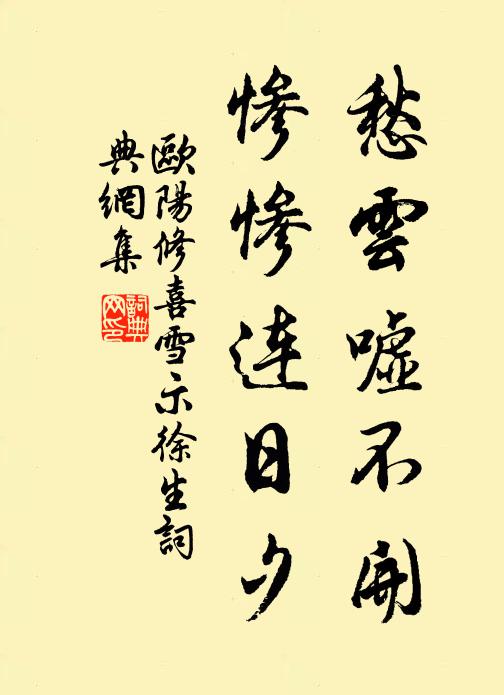 愁雲噓不開
慘慘連日夕
歐陽修喜雪示徐生詞
典網集
詞典
网印